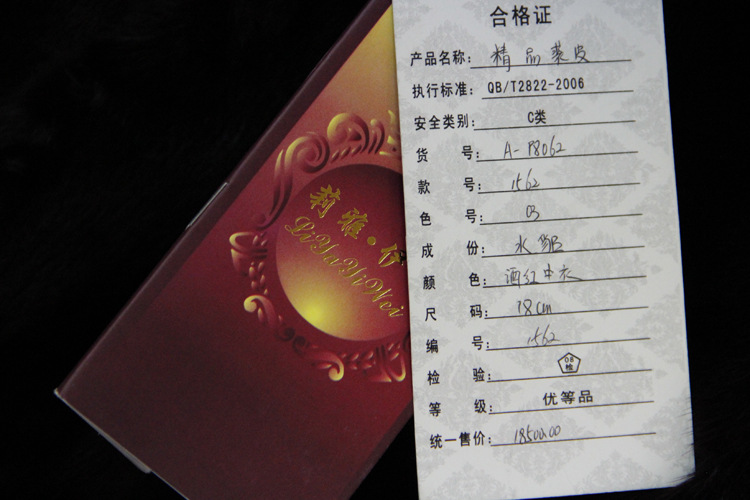 合格证
产品名称: 精品裘皮
执行标准: QB/T2822-2006
安全类别: C类
货 号: A-P8062
款 号: 1562
色 号: 03
成 份: 水貂
颜 色: 酒红中衣
尺 码: 78cm
编 号: 1562
检 验: 08 检
等 级: 优等品
统一售价: 18500.00
莉雅·伊
LiYaYiWei